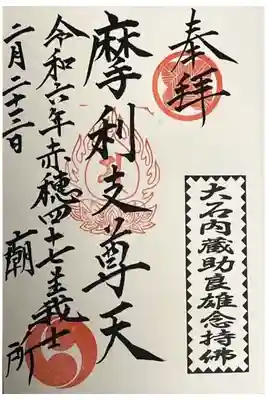 奉拝
大石内蔵助良雄念持佛
摩利支尊天
赤穂四十七義士廟所
令和六年
二月二十三日